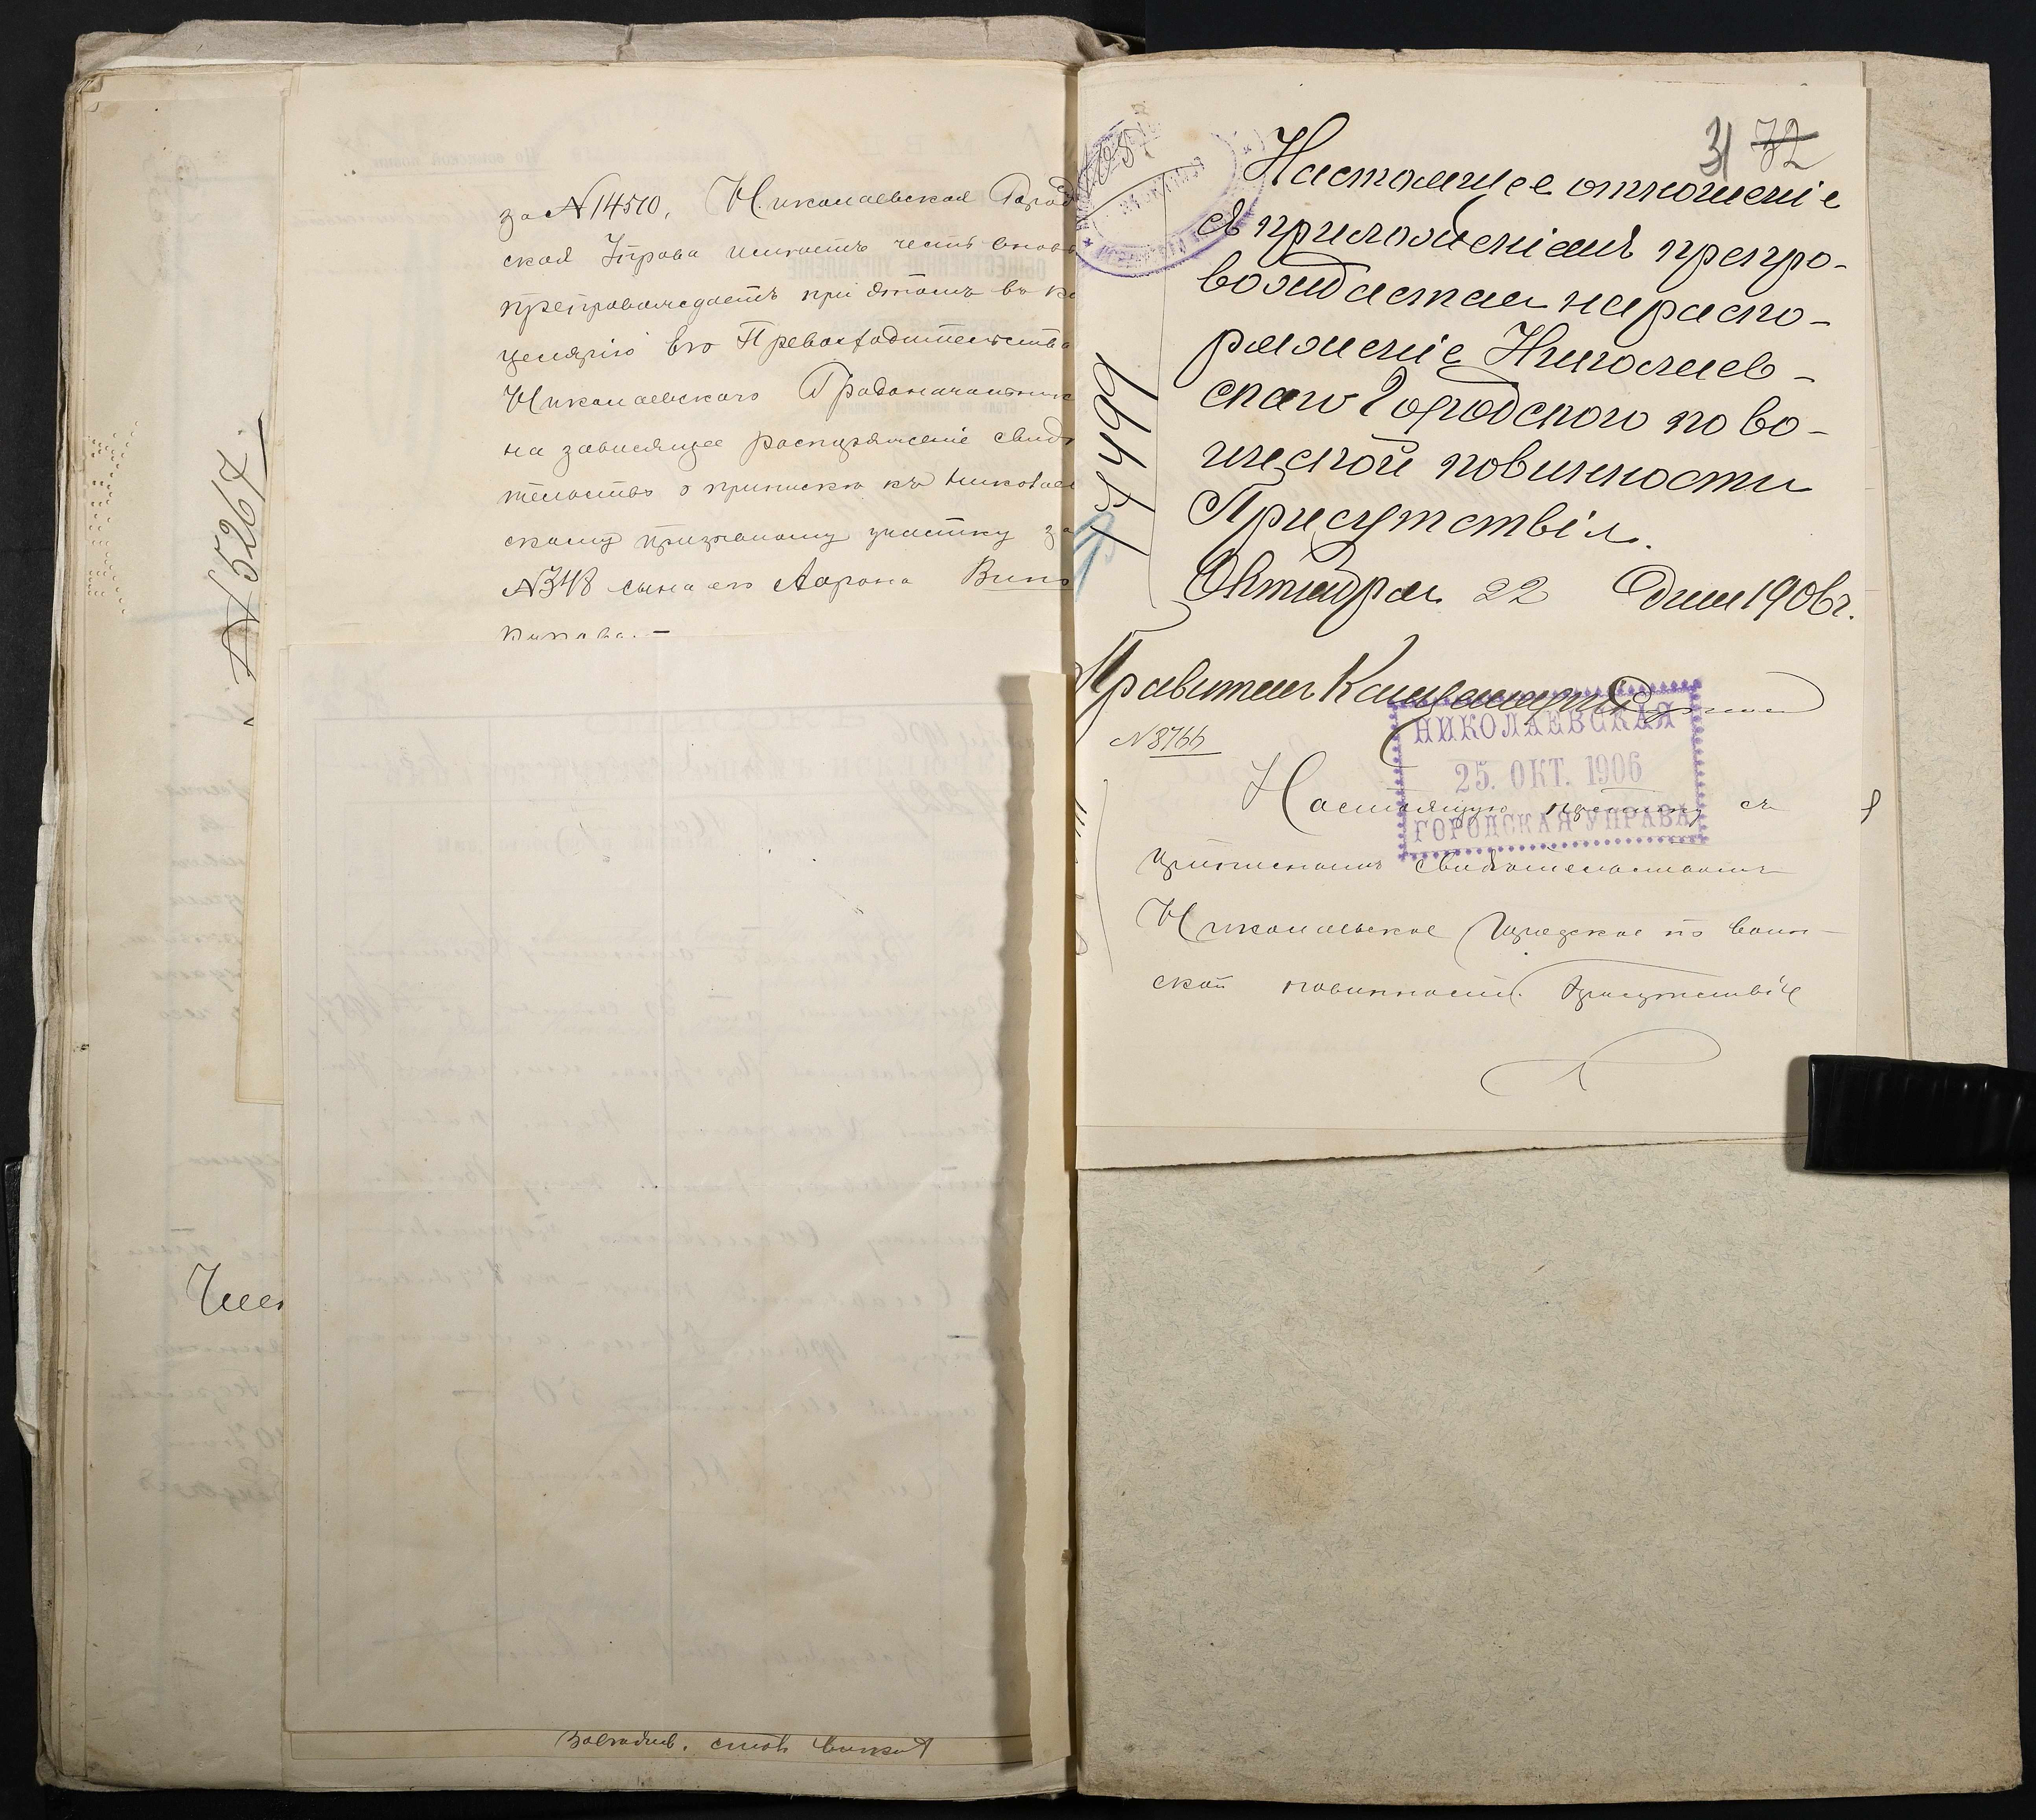 за №14510, Николаевская Город
ская Управа имѣетъ честь вновь
препровождаетъ при этомъ въ ка
целярію Его Превосходительства
Николаевскаго Градоначальник
на зависящее распоряженіе свидѣ
тельство о припискѣ къ Николаев
скому призывному участку за
№348 сына его Аарона Вино
кикова.—
№5267
Завѣдыв. столъ
31 72
Настоящее отношеніе
съ приложеніемъ препро-
вождается на распо-
ряженіе Николаев-
скаго Городского по во-
инской повинности
Присутствія.
Октября 22 дня 1906г.
Правитель Канцеляріи
№8766
17499
НИКОЛАЕВСКАЯ
25. ОКТ. 1906
ГОРОДСКАЯ УПРАВА
Настоящую съ
приписнымъ свидѣтельствомъ
Николаевское Городское по воин-
ской повинности Присутствіе